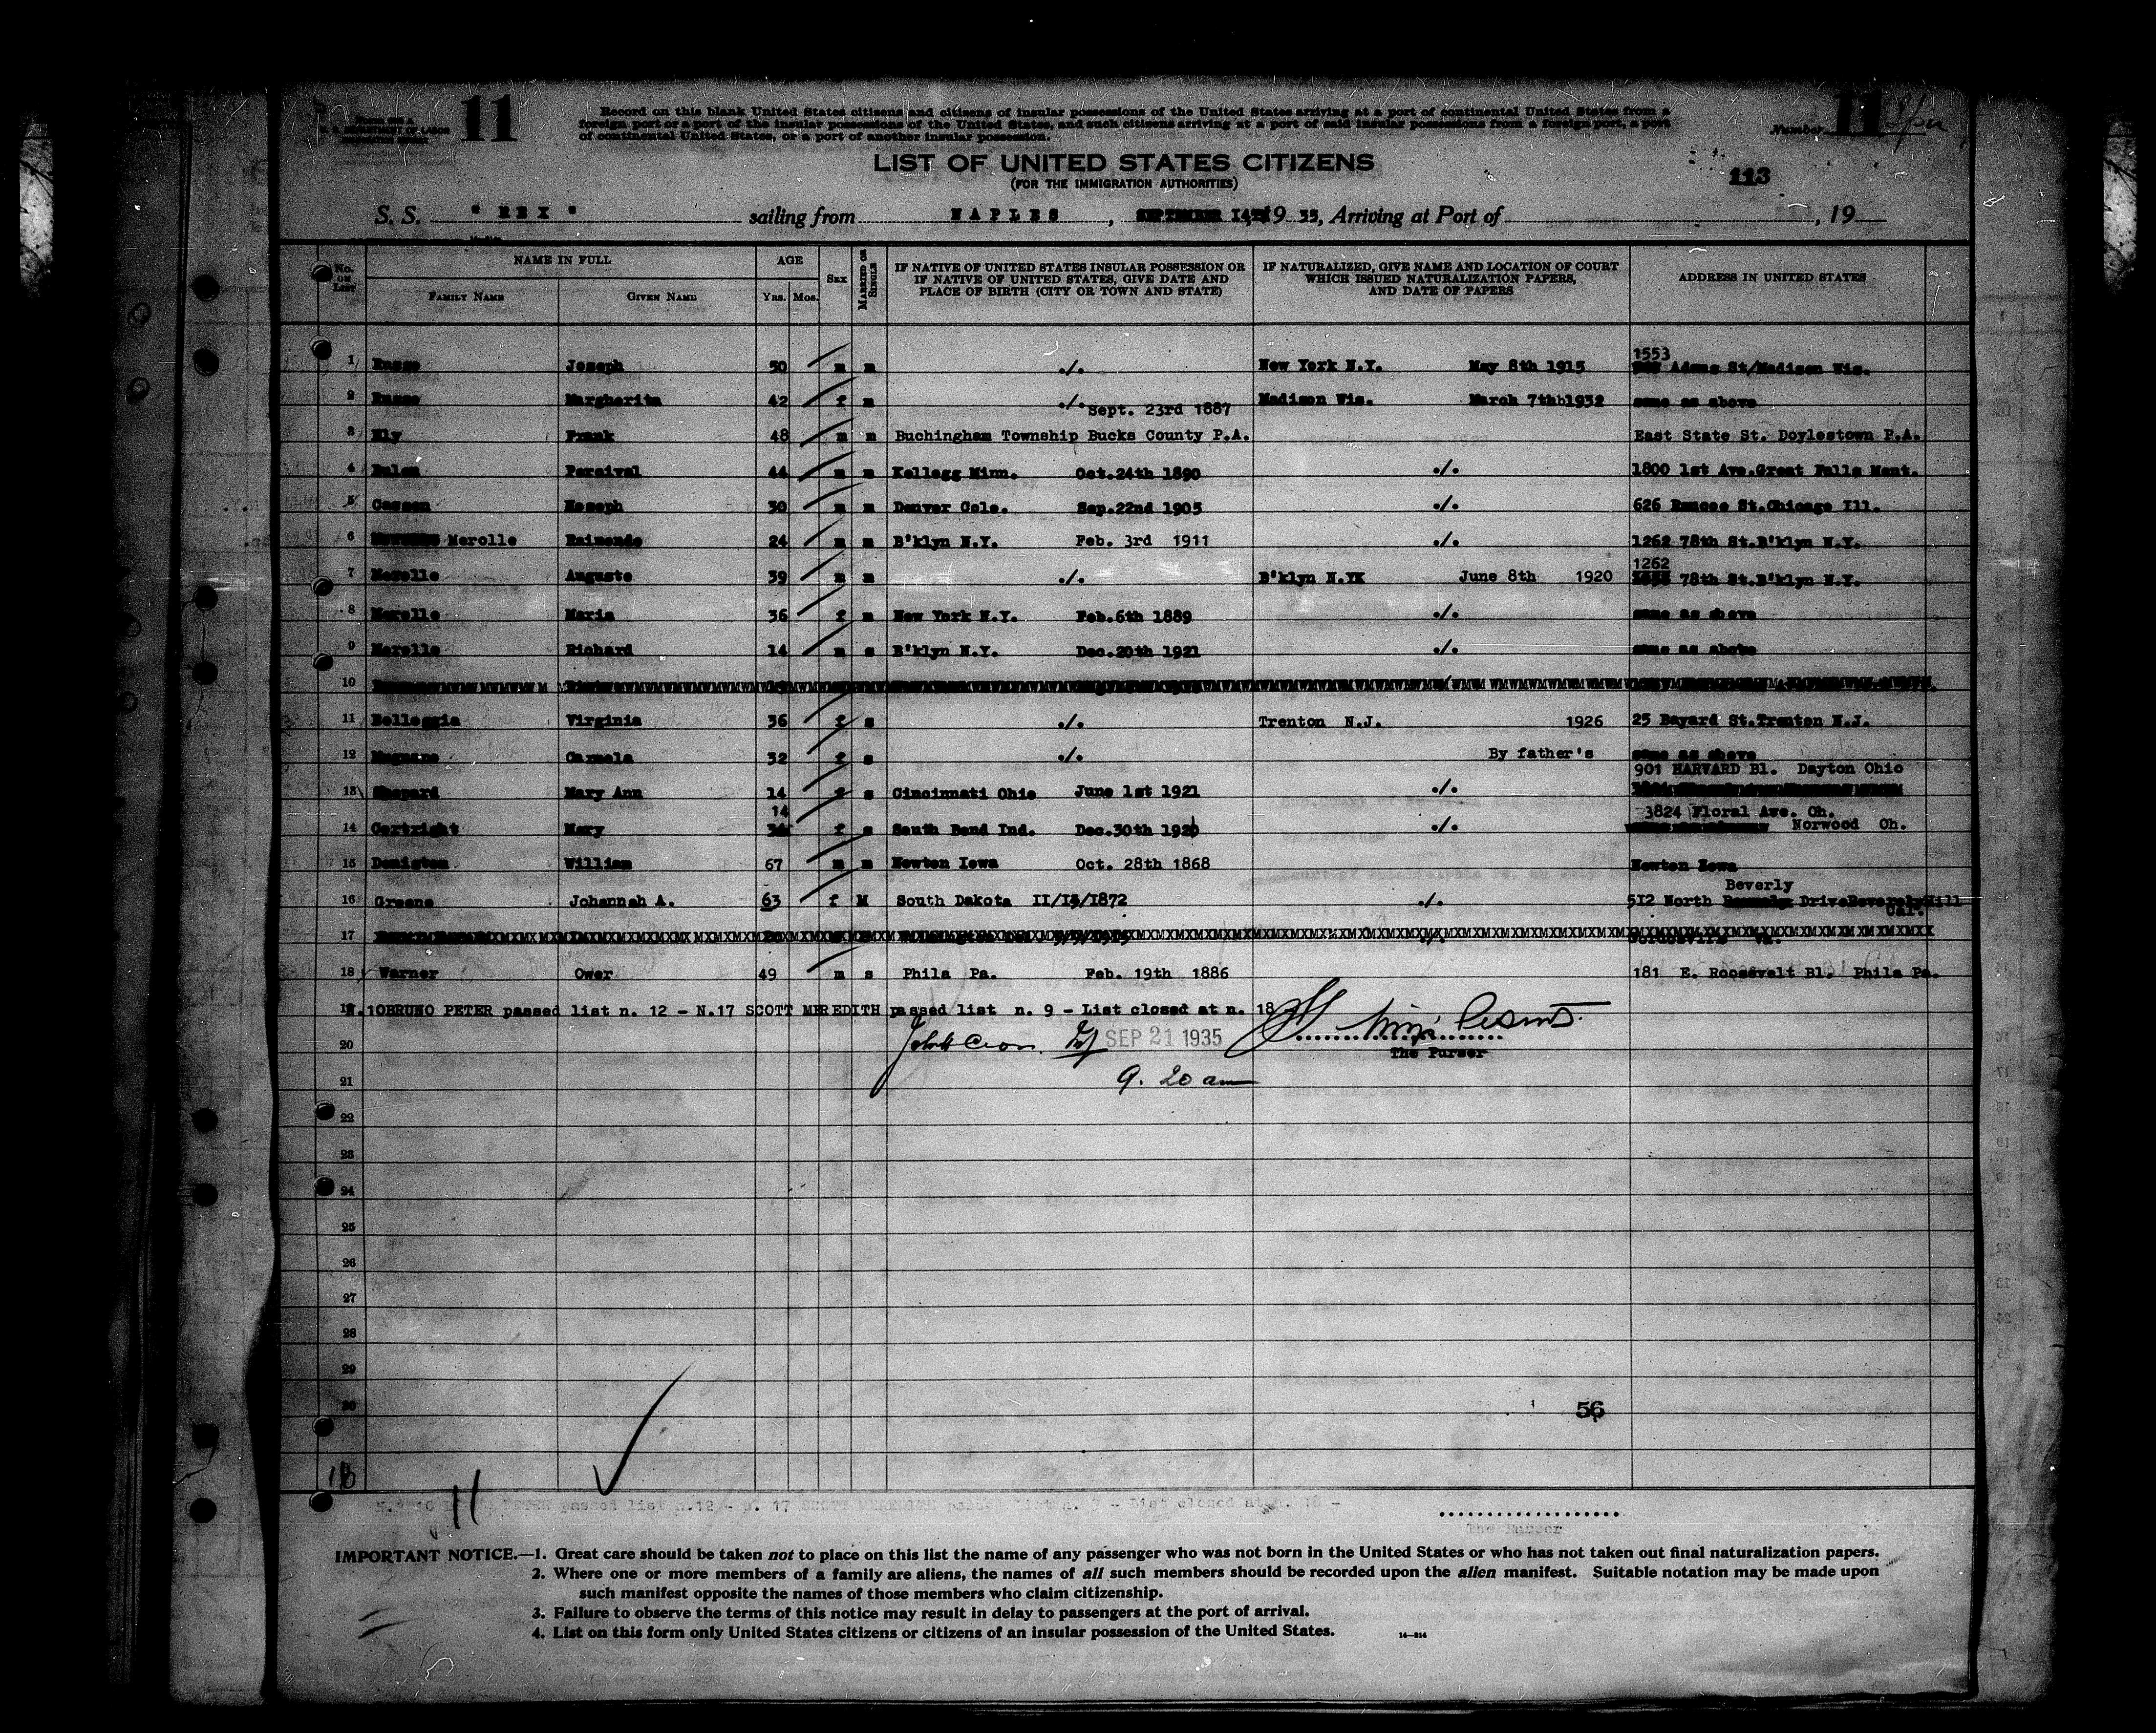 11
Record on this blank United States citizens and citizens of insular possessions of the United States arriving at a port of continental United States from a
foreign port or a port of the insular possessions of the United States, and such citizens arriving at a port of said insular possessions from a foreign port, a port
of continental United States, or a port of another insular possession.
Number 11
U. S. DEPARTMENT OF LABOR
LIST OF UNITED STATES CITIZENS
(FOR THE IMMIGRATION AUTHORITIES)
113
S. S. " REX " sailing from NAPLES, SEPTEMBER 14th 19 35, Arriving at Port of , 19
No. ON LIST
NAME IN FULL
FAMILY NAME
GIVEN NAME
AGE
Yrs. Mos.
SEX
MARRIED OR SINGLE
IF NATIVE OF UNITED STATES INSULAR POSSESSION OR
IF NATIVE OF UNITED STATES, GIVE DATE AND
PLACE OF BIRTH (CITY OR TOWN AND STATE)
IF NATURALIZED, GIVE NAME AND LOCATION OF COURT
WHICH ISSUED NATURALIZATION PAPERS,
AND DATE OF PAPERS
ADDRESS IN UNITED STATES
1553
1 Russo Joseph 50 m m ./. New York N.Y. May 8th 1915 Adams St/Madison Wis.
2 Russo Margherita 42 f m ./. Madison Wis. March 7thh1932 same as above
Sept. 23rd 1887
3 Ely Frank 48 m m Buchingham Township Bucks County P.A. East State St. Doylestown P.A.
4 Percival 44 m m Kellogg Minn. Oct.24th 1890 ./. 1800 1st Ave.Great Falls Mont.
5 30 m m Denver Colo. Sep.22nd 1905 ./. 626 St.Chicago Ill.
6 Merolle Raimondo 24 m m B'klyn N.Y. Feb. 3rd 1911 ./. 1262 78th St.B'klyn N.Y.
1262
7 Merolle Augusto 39 m m ./. B'klyn N.YX June 8th 1920 78th St.B'klyn N.Y.
8 Merolle Maria 36 f m New York N.Y. Feb.6th 1889 ./. same as above
9 Merolle Richard 14 m s B'klyn N.Y. Dec.20th 1921 ./. same as above
10
11 Belleggia Virginia 36 f s ./. Trenton N.J. 1926 25 Bayard St.Trenton N.J.
12 Magnano Carmela 32 f s ./. By father's same as above
901 HARVARD Bl. Dayton Ohio
13 Shepard Mary Ann 14 f s Cincinnati Ohio June 1st 1921 ./.
14 3824 Floral Ave. Oh.
14 Cartright Mary f s South Bend Ind. Dec.30th 1920 ./. Norwood Oh.
15 Deniston William 67 m m Newton Iowa Oct. 28th 1868 Newton Iowa
Beverly
16 Greene Johannah A. 63 f M South Dakota II/14/1872 ./. 512 North DriveBeverlyHill
Cal.
17
18 Warner Ower 49 m s Phila Pa. Feb. 19th 1886 181 E. Roosevelt Bl. Phila Pa.
19 N.10BRUNO PETER passed list n. 12 - N.17 SCOTT MEREDITH passed list n. 9 - List closed at n. 18
20 SEP 21 1935
The Purser
21 9. 20 am
22
23
24
25
26
27
28
29
30
56
11
N. 10 PETER passed list n.12 - n. 17 SCOTT list n. 9 - List closed at n. 18 -
The Purser
IMPORTANT NOTICE.—1. Great care should be taken not to place on this list the name of any passenger who was not born in the United States or who has not taken out final naturalization papers.
2. Where one or more members of a family are aliens, the names of all such members should be recorded upon the alien manifest. Suitable notation may be made upon
such manifest opposite the names of those members who claim citizenship.
3. Failure to observe the terms of this notice may result in delay to passengers at the port of arrival.
4. List on this form only United States citizens or citizens of an insular possession of the United States.
14—814